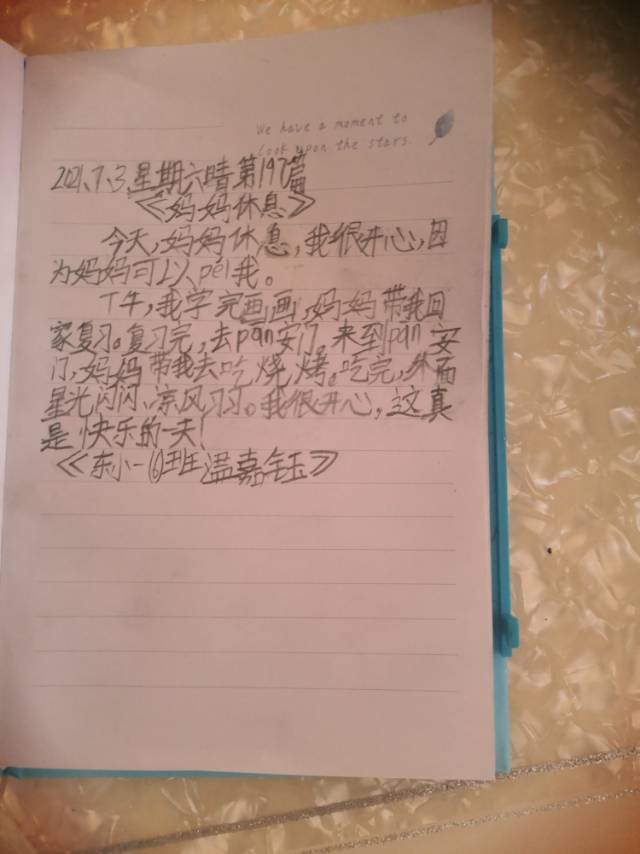 We have a moment to
look upon the stars.
2021.7.3.星期六晴第197篇
《妈妈休息》
今天,妈妈休息,我很开心,因
为妈妈可以péi我。
下午,我学完画画,妈妈带我回
家复习。复习完,去pán安门。来到pán安
门,妈妈带我去吃烧烤。吃完,外面
星光闪闪、凉风习习。我很开心,这真
是快乐的一天!
《东小一(6)班温嘉钰》